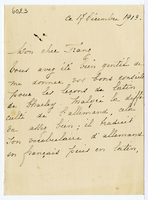 6083
ce 17 Décembre 1913.
Mon cher Franz
Vous avez été bien gentil de
me donner vos bons conseils
pour les leçons de latin
de Charley. Malgré la diffi-
culté de l'allemand, cela
va allez bien; il traduit
son vocabulaire d'allemand
en français puis en latin,